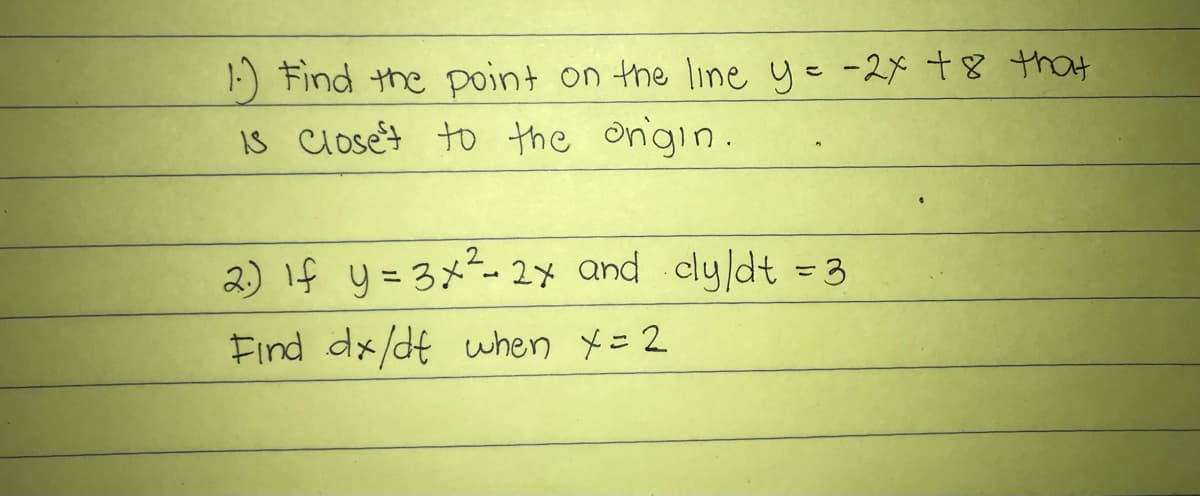 1.) Find the point on the line y = -2x + 8 that
is closest to the origin.
2.) If y = 3x² - 2x and dy/dt = 3
Find dx/dt when x = 2